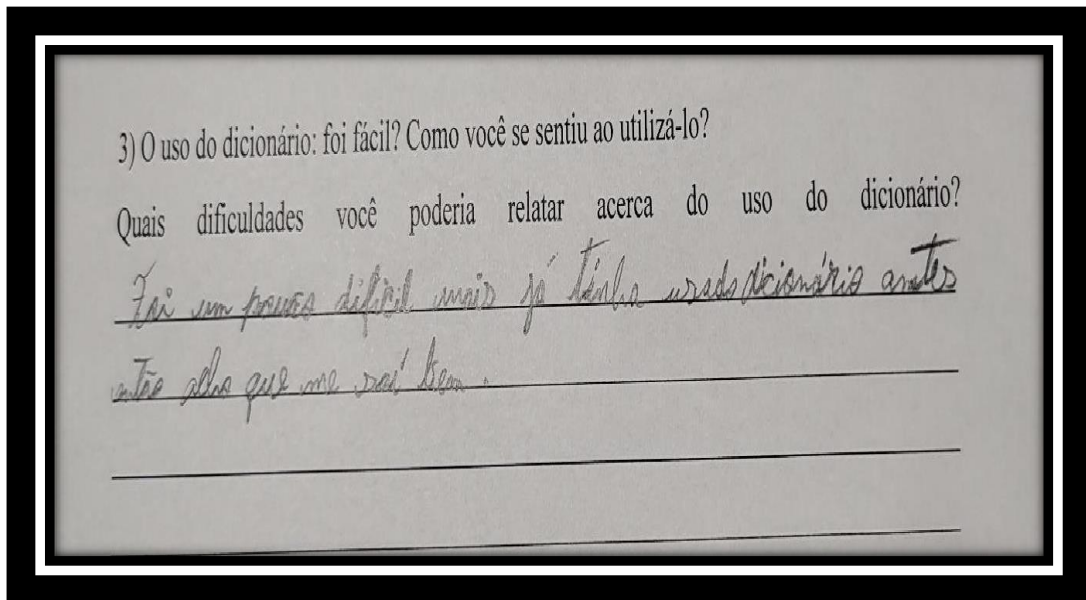 3) O uso do dicionário: foi fácil? Como você se sentiu ao utilizá-lo?
Quais dificuldades você poderia relatar acerca do uso do dicionário?
Foi um pouco difícil mais já tinha usado dicionário antes
então acho que me saí bem.